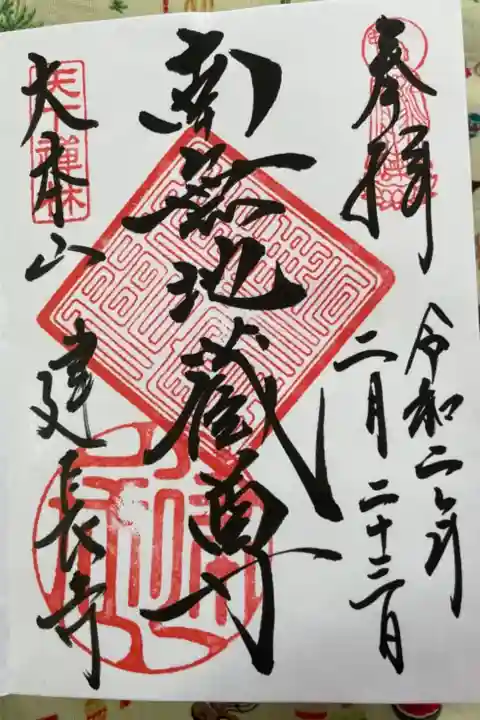 奉拝
令和二年
二月二十三日
南無地蔵尊
天下禅林
大本山
建長寺